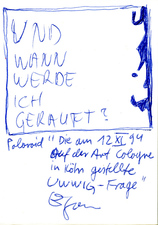 UND
WANN
WERDE
ICH
GERAUFT?
Polaroid "Die am 12 XI. 94
Auf der Art Cologne
in Köln gestellte
UWWIG-Frage"